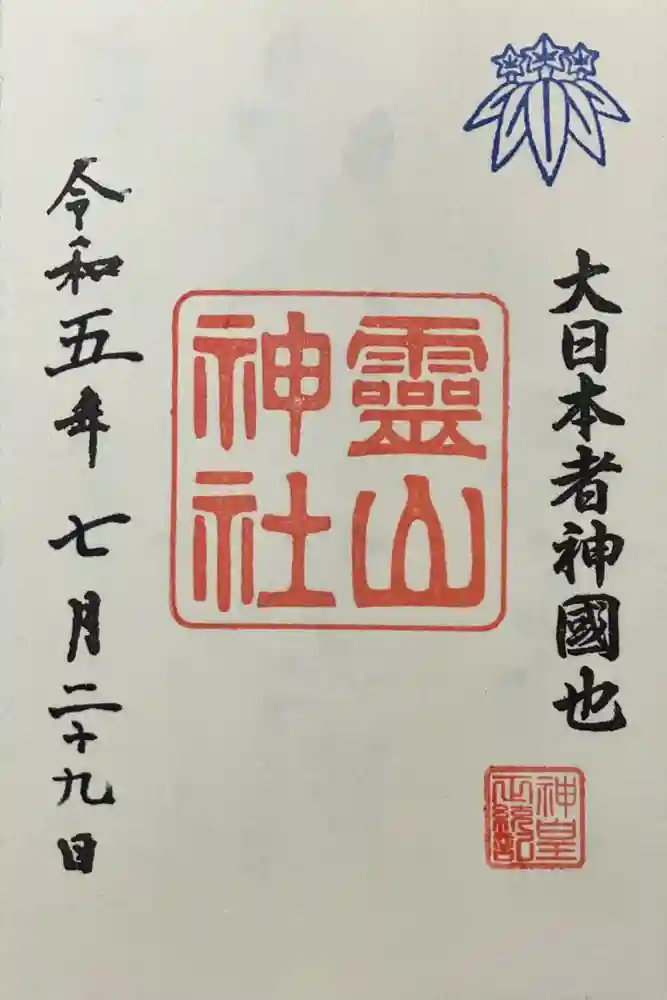 大日本者神國也
神皇
正統記
靈山
神社
令和五年七月二十九日